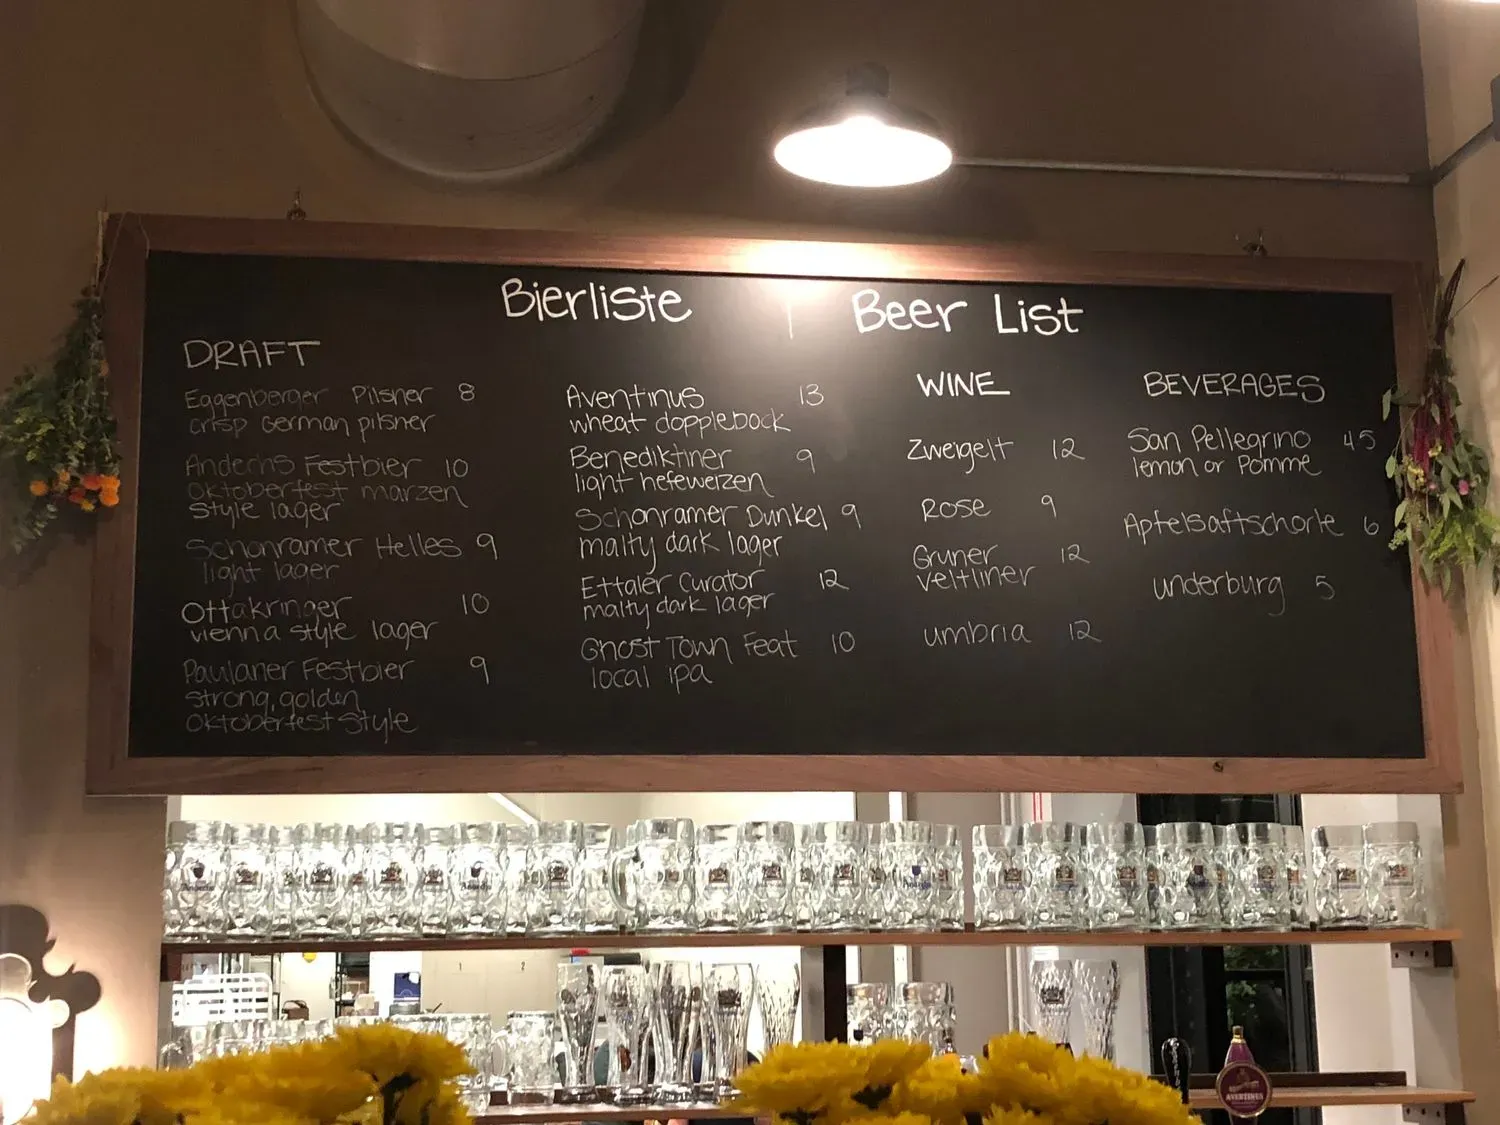 Bierliste | Beer List
DRAFT
Eggenberger Pilsner 8
crisp German pilsner
Andechs Festbier 10
Oktoberfest marzen
style lager
Schonramer Helles 9
light lager
Ottakringer 10
vienna style lager
Paulaner Festbier 9
strong, golden
Oktoberfest style
Aventinus 13
wheat dopplebock
Benediktiner 9
light hefeweizen
Schonramer Dunkel 9
malty dark lager
Ettaler Curator 12
malty dark lager
Ghost Town Feat 10
local ipa
WINE
Zweigelt 12
Rose 9
Gruner 12
Veltliner
umbria 12
BEVERAGES
San Pellegrino 45
lemon or Pomme
Apfelsaftschorle 6
underburg 5
AVENTINUS